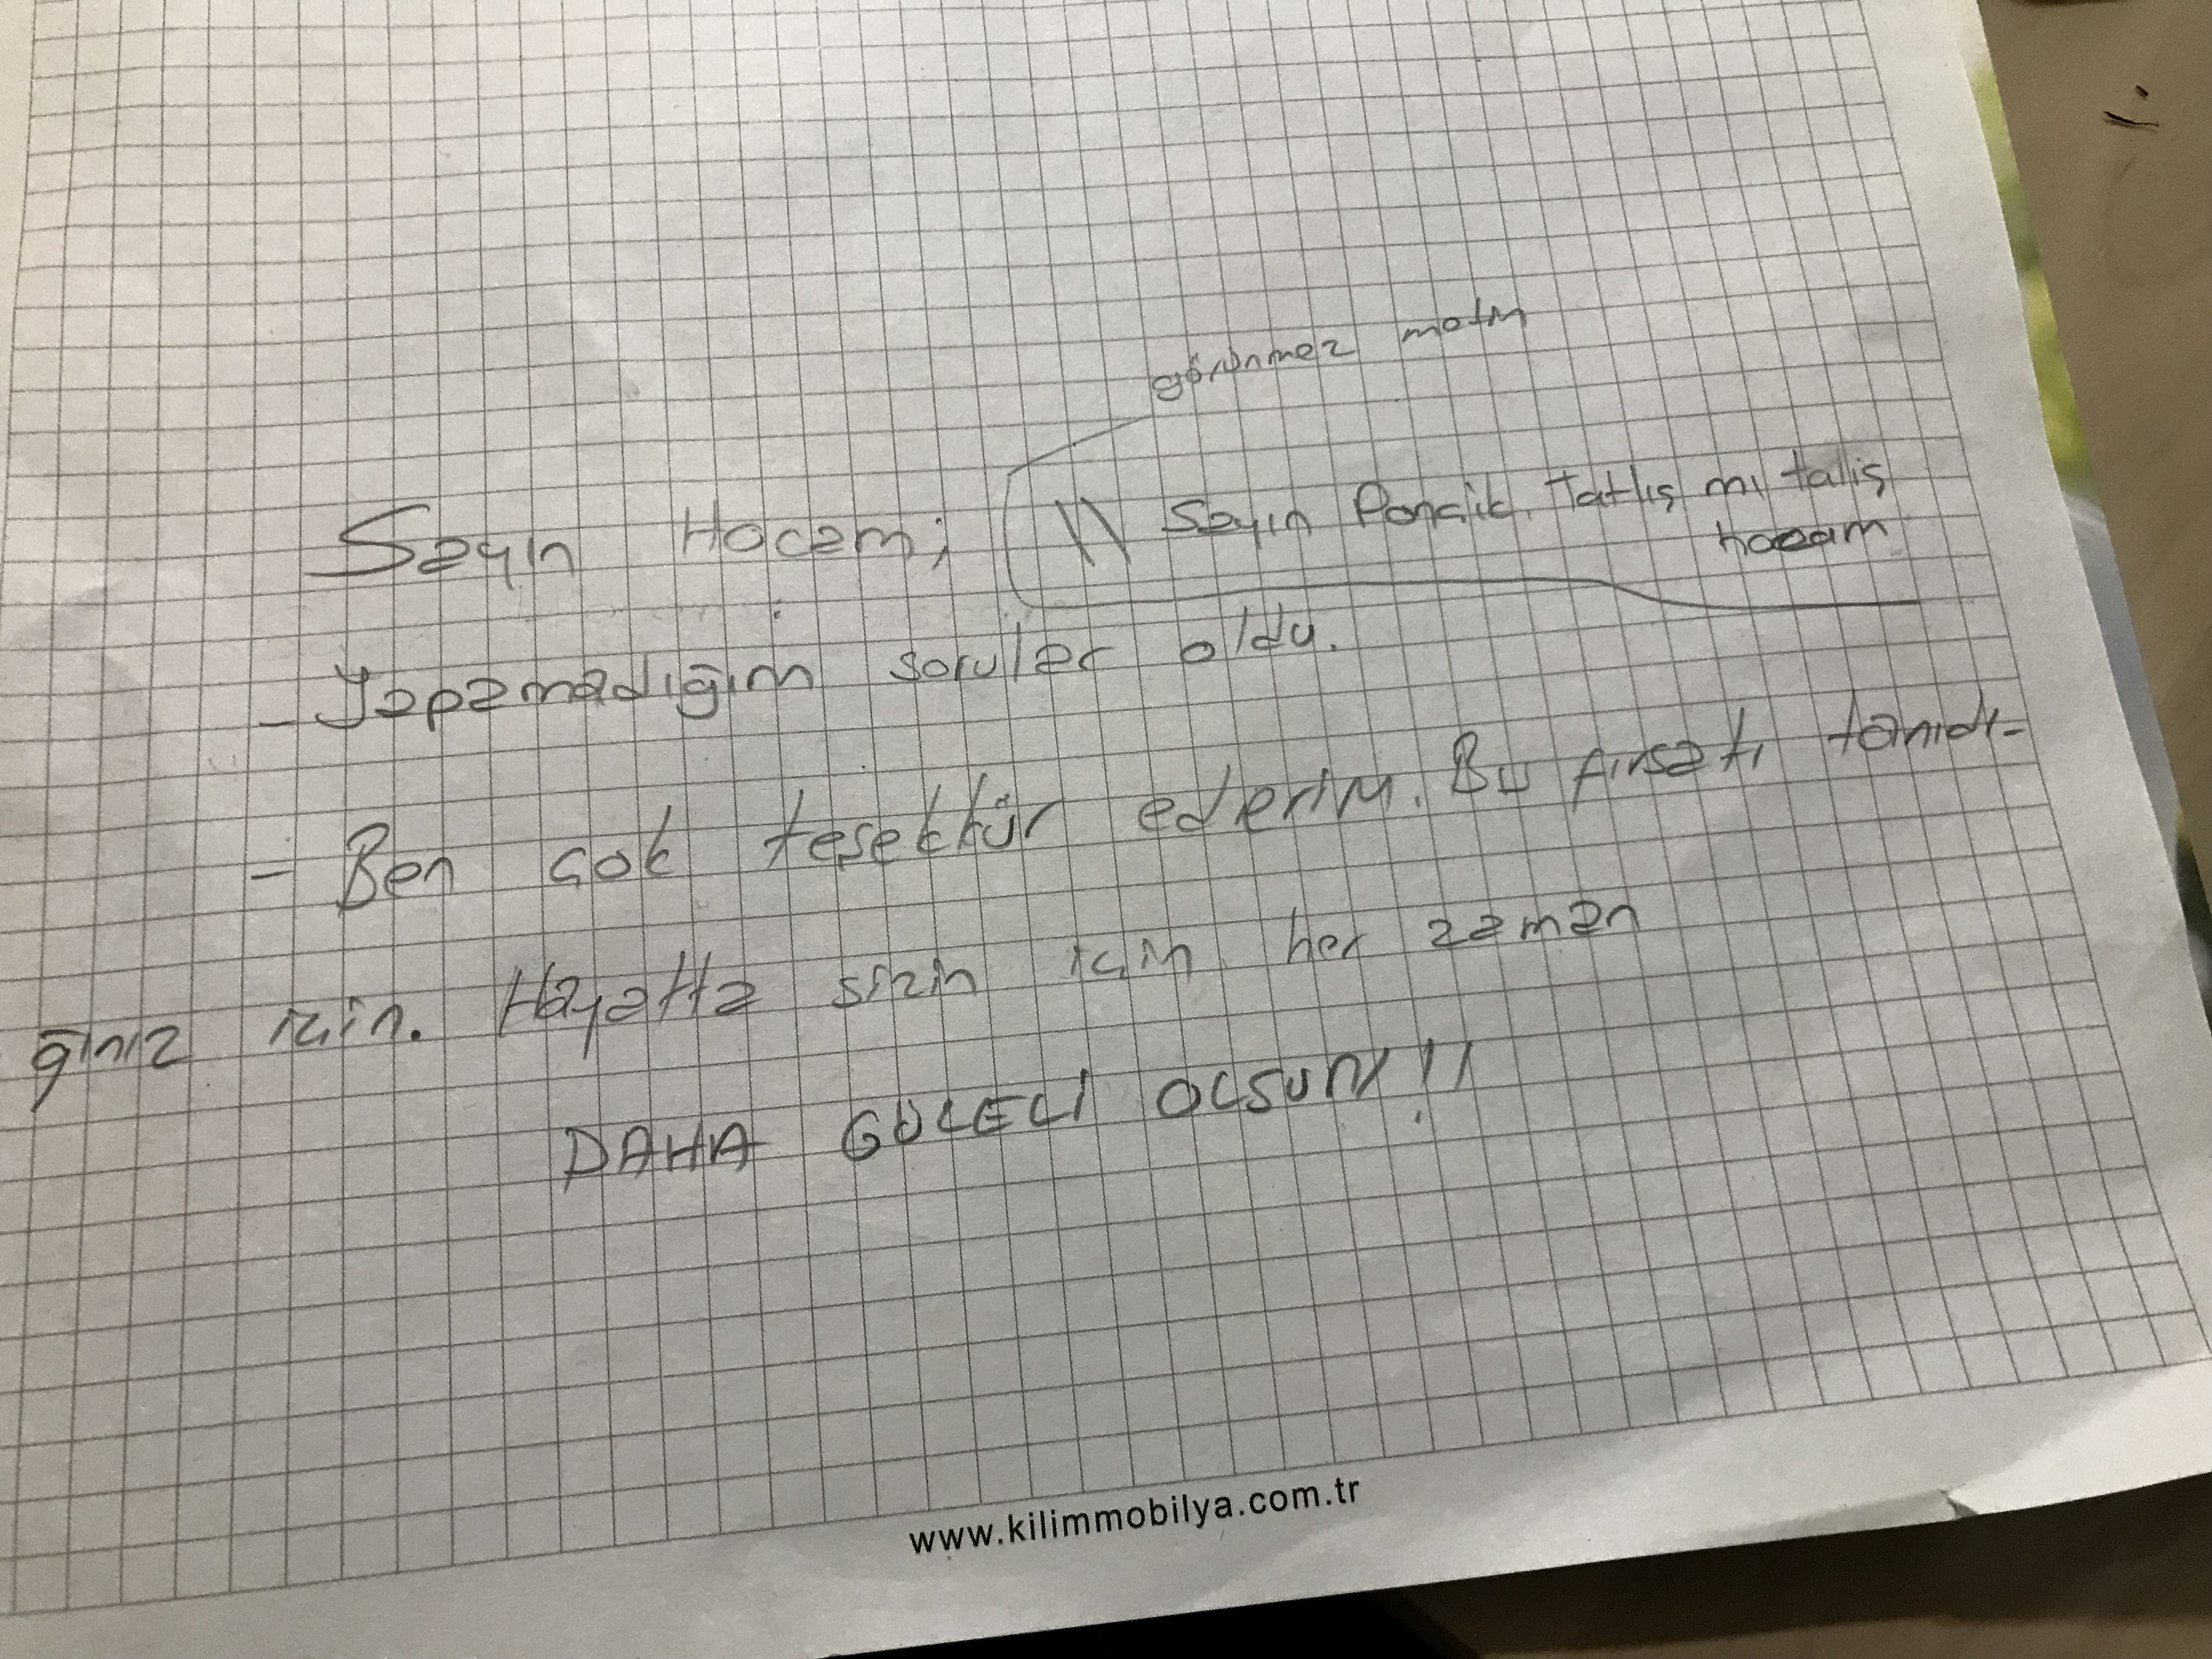 görünmez motm
Sayın Hocam; // Sayın Ponçik, Tatlış mı tatlış
hocam
- Yapamadığım sorular oldu.
- Ben çok teşekkür ederim. Bu fırsatı tanıdı-
ğınız için. Hayatta sizin için her zaman
DAHA GÜLEÇ OLSUN !!
www.kilimmobilya.com.tr